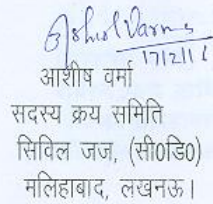 Ashish Varma
17/2/16
आशीष वर्मा
सदस्य क्रय समिति
सिविल जज, (सी0डि0)
मलिहाबाद, लखनऊ।